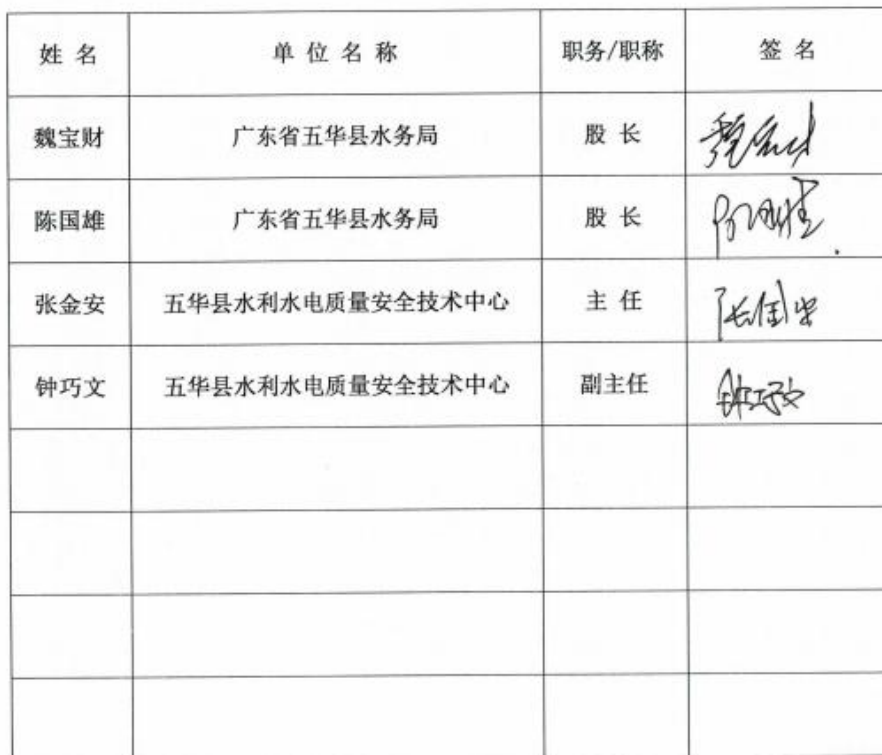 姓 名 单 位 名 称 职务/职称 签 名
魏宝财 广东省五华县水务局 股 长 魏宝财
陈国雄 广东省五华县水务局 股 长 陈国雄
张金安 五华县水利水电质量安全技术中心 主 任 张金安
钟巧文 五华县水利水电质量安全技术中心 副主任 钟巧文